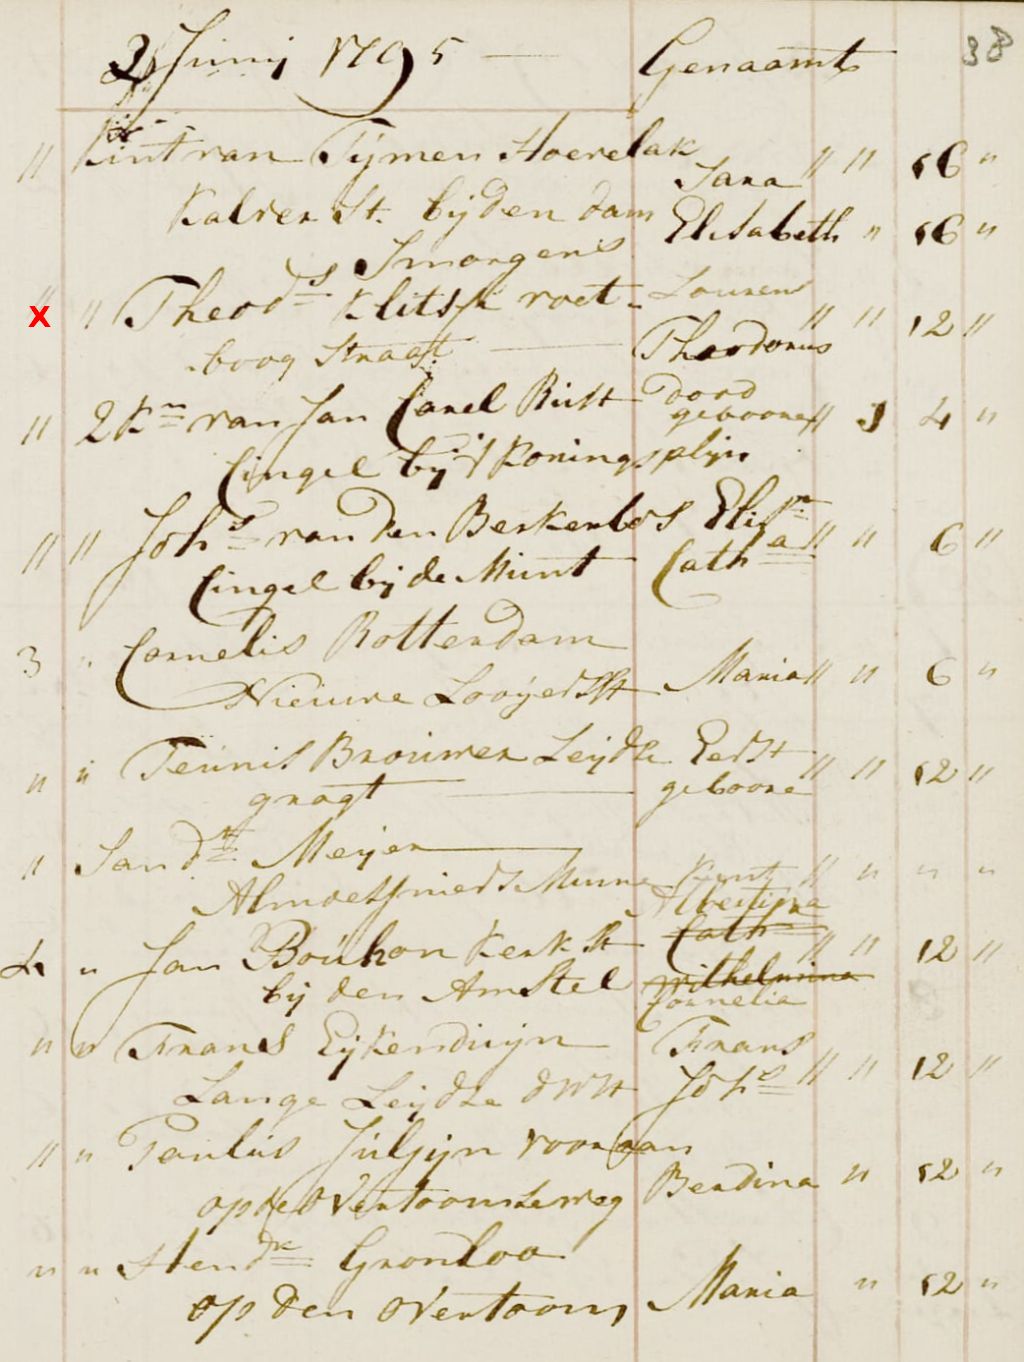 2 Junij 1795 — Genaamt 38
" Kint van Tijmen Hoevelak Sara " " 16 "
Kalver St. bij den dam Elisabeth " 16 "
Smorgens
x " Theod^s Klitsk roet- Lourens
boog Straat — Theodorus " " 12 "
" 2 K^n van Jan Carel Bust Dood geboore " 3 4 "
Cingel bij 't Konings plijn
" " Joh^s van den Berkenbos Elis^n
Cingel bij de Munt Cath^a " " 6 "
3 " Cornelis Rotterdam
Nieuwe Looijers St Maria " " 6 "
" " Teunis Brouwer Leijdse Eerst
gragt — geboore " " 12 "
" Sand^r Meijer —
Almoesseniers Munne Kint " " " "
Albertina
4 " Jan Bouhon Kerk St Cath " " 12 "
bij den Amstel Wilhelmina
Cornelia
" " Frans Eijkenduijn Frans
Lange Leijdse dwst Joh^s " " 12 "
" " Paulus Juljijn vooraan
op de Overtoomseweg Berdina " 12 "
" " Hend^k Gronloo
op den Overtoom, Maria " 12 "